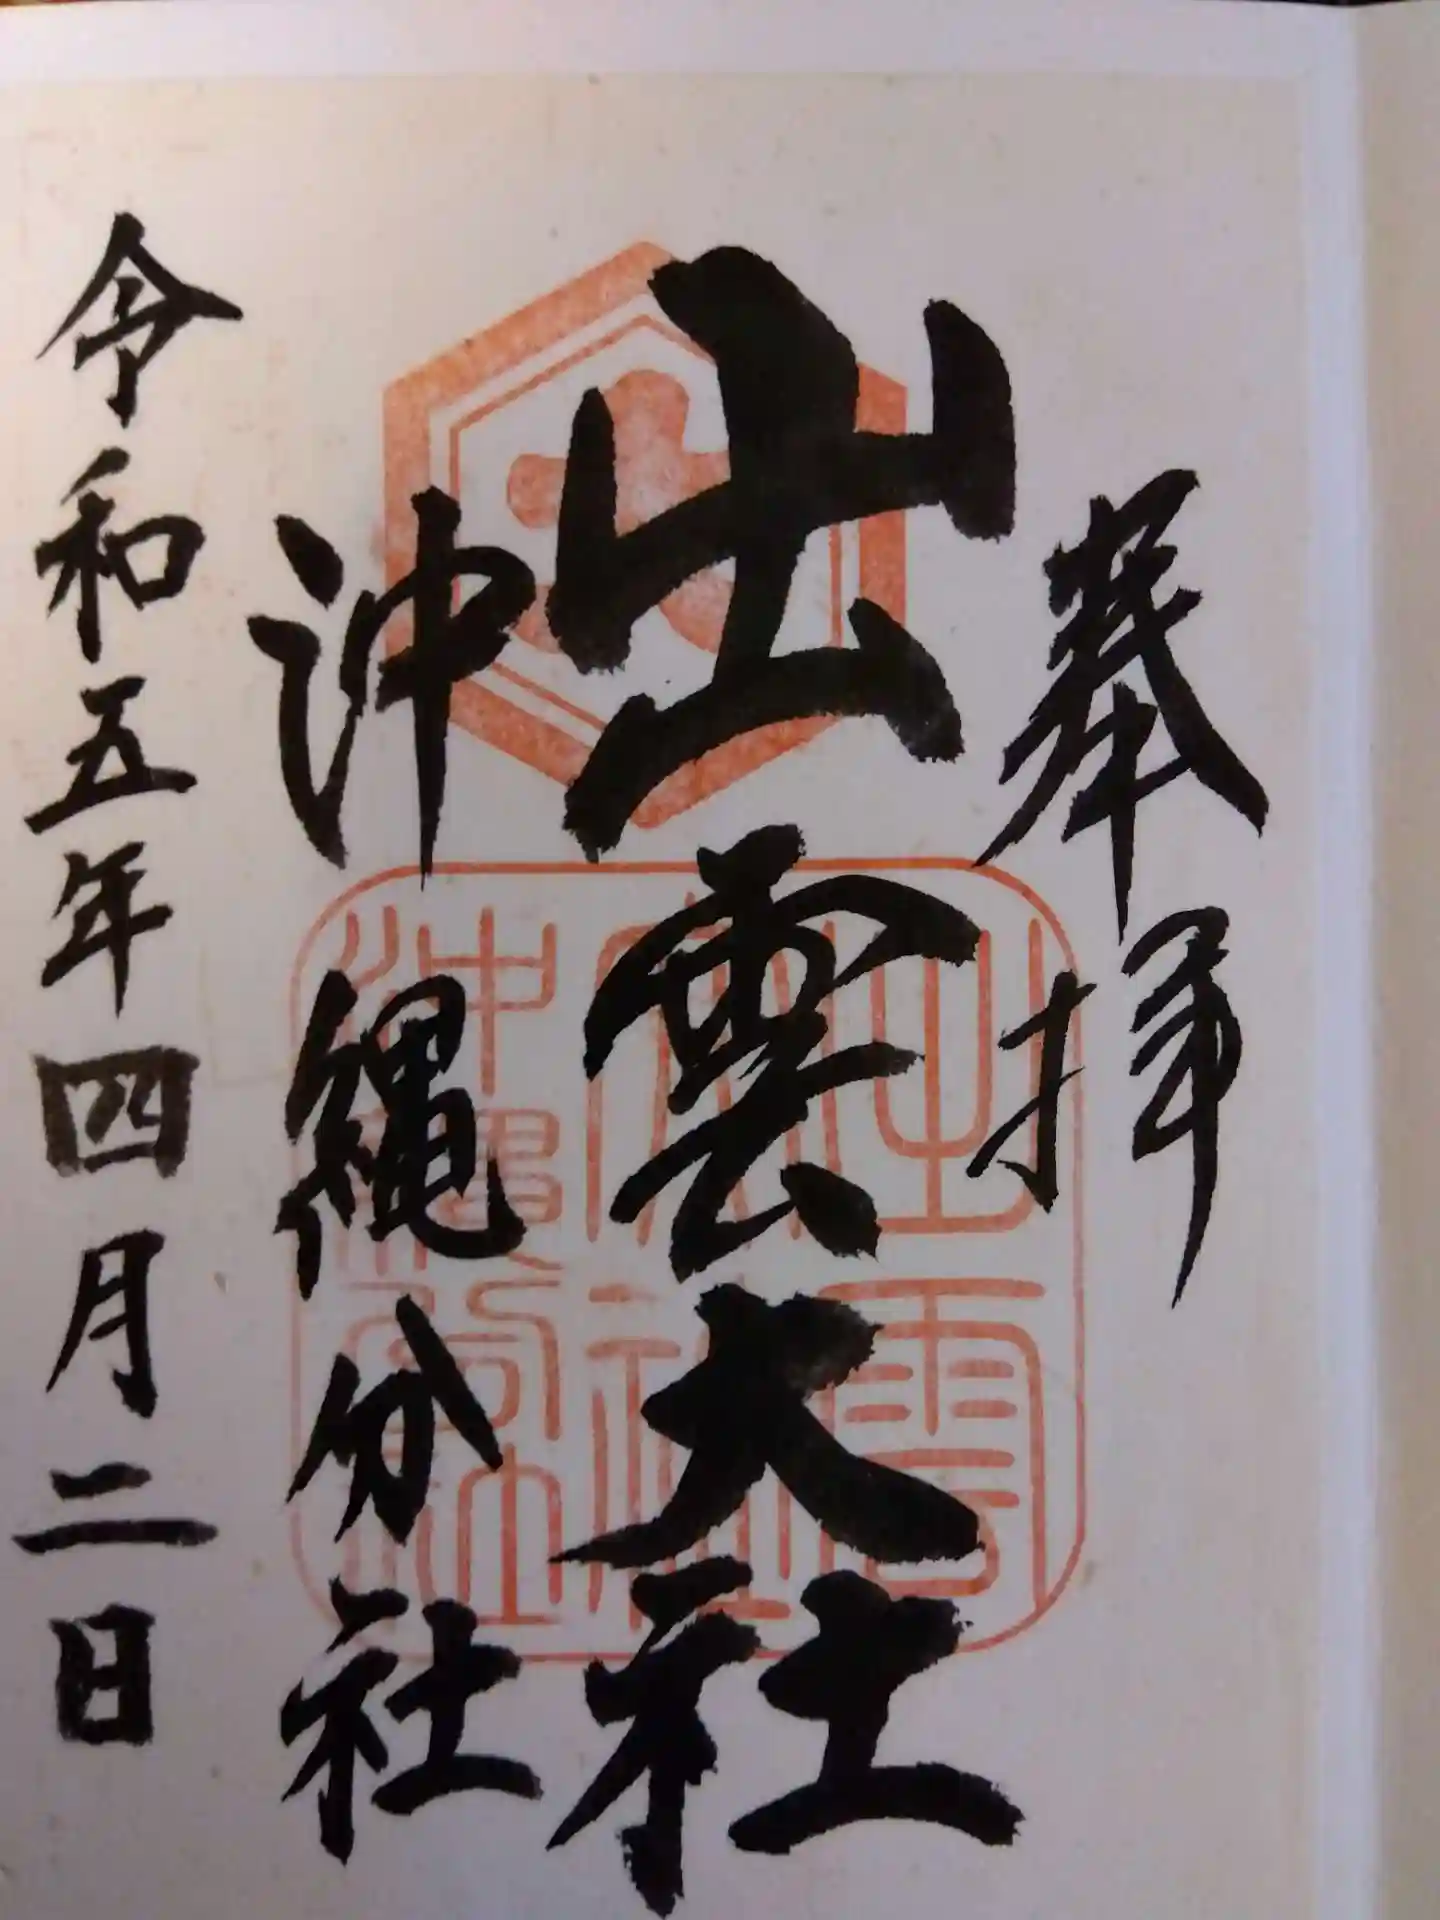 奉拝
出雲大社
沖縄分社
令和五年四月二日
出雲
大社
沖縄
分社